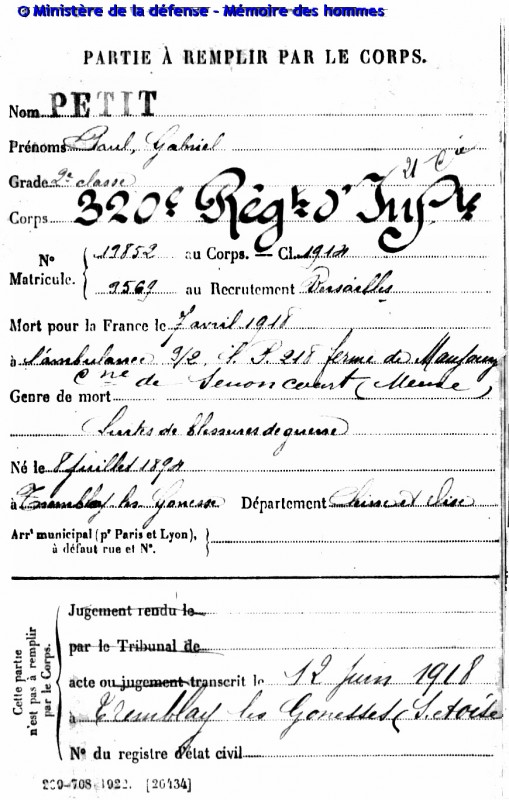 © Ministère de la défense - Mémoire des hommes
PARTIE À REMPLIR PAR LE CORPS.
Nom PETIT
Prénoms Paul, Gabriel
Grade 2e classe 21 Cie
Corps 320e Régt d'Infie
N° Matricule. { 17852 au Corps. — Cl. 1914
9569 au Recrutement Versailles
Mort pour la France le 7 avril 1918
à l'ambulance 9/2, S. P. 218 ferme de
Cne de Senoncourt (Meuse)
Genre de mort
Suites de blessures de guerre
Né le 8 juillet 1894
à Tremblay les Gonesse Département Seine et Oise
Arrt municipal (pr Paris et Lyon), }
à défaut rue et N°.
Cette partie n'est pas à remplir par le Corps. {
Jugement rendu le
par le Tribunal de
acte ou jugement transcrit le 12 Juin 1918
à Tremblay les Gonesses (S. et Oise
N° du registre d'état civil
269-708-1922. [26434]